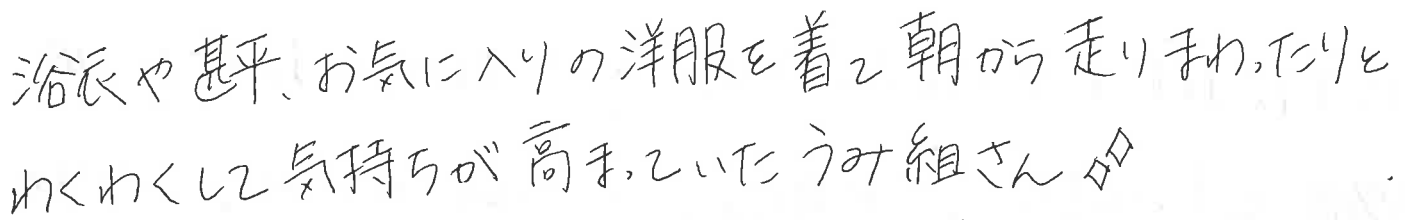 浴衣や甚平、お気に入りの洋服を着て朝から走りまわったりと
わくわくして気持ちが高まっていたうみ組さん